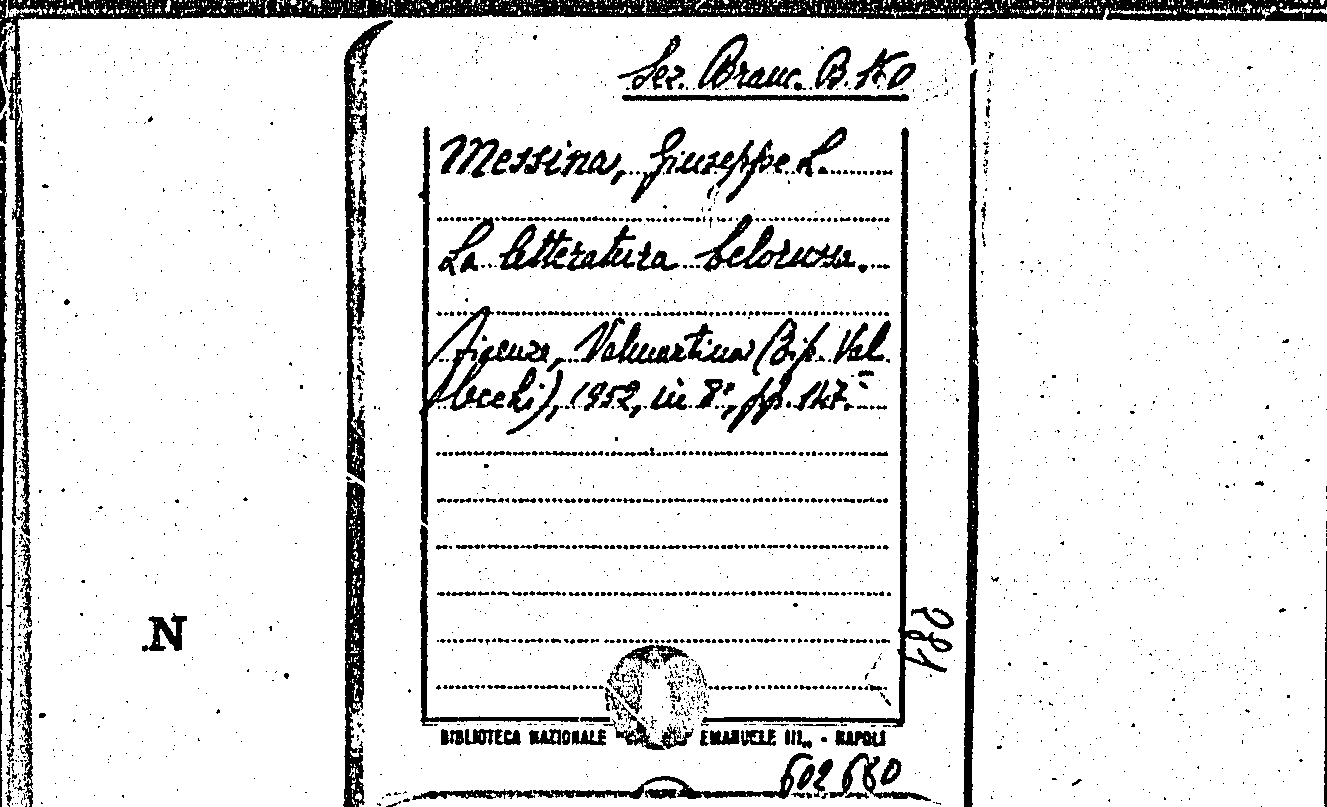 Sez. Branc. B. 140
Messina, Giuseppe L.
La letteratura belorussa.
Firenze, Valmartina (Tip. Val
lecchi), 1952, in 8°, pp. 147.
N
BIBLIOTECA NAZIONALE EMANUELE III„ - NAPOLI
602680